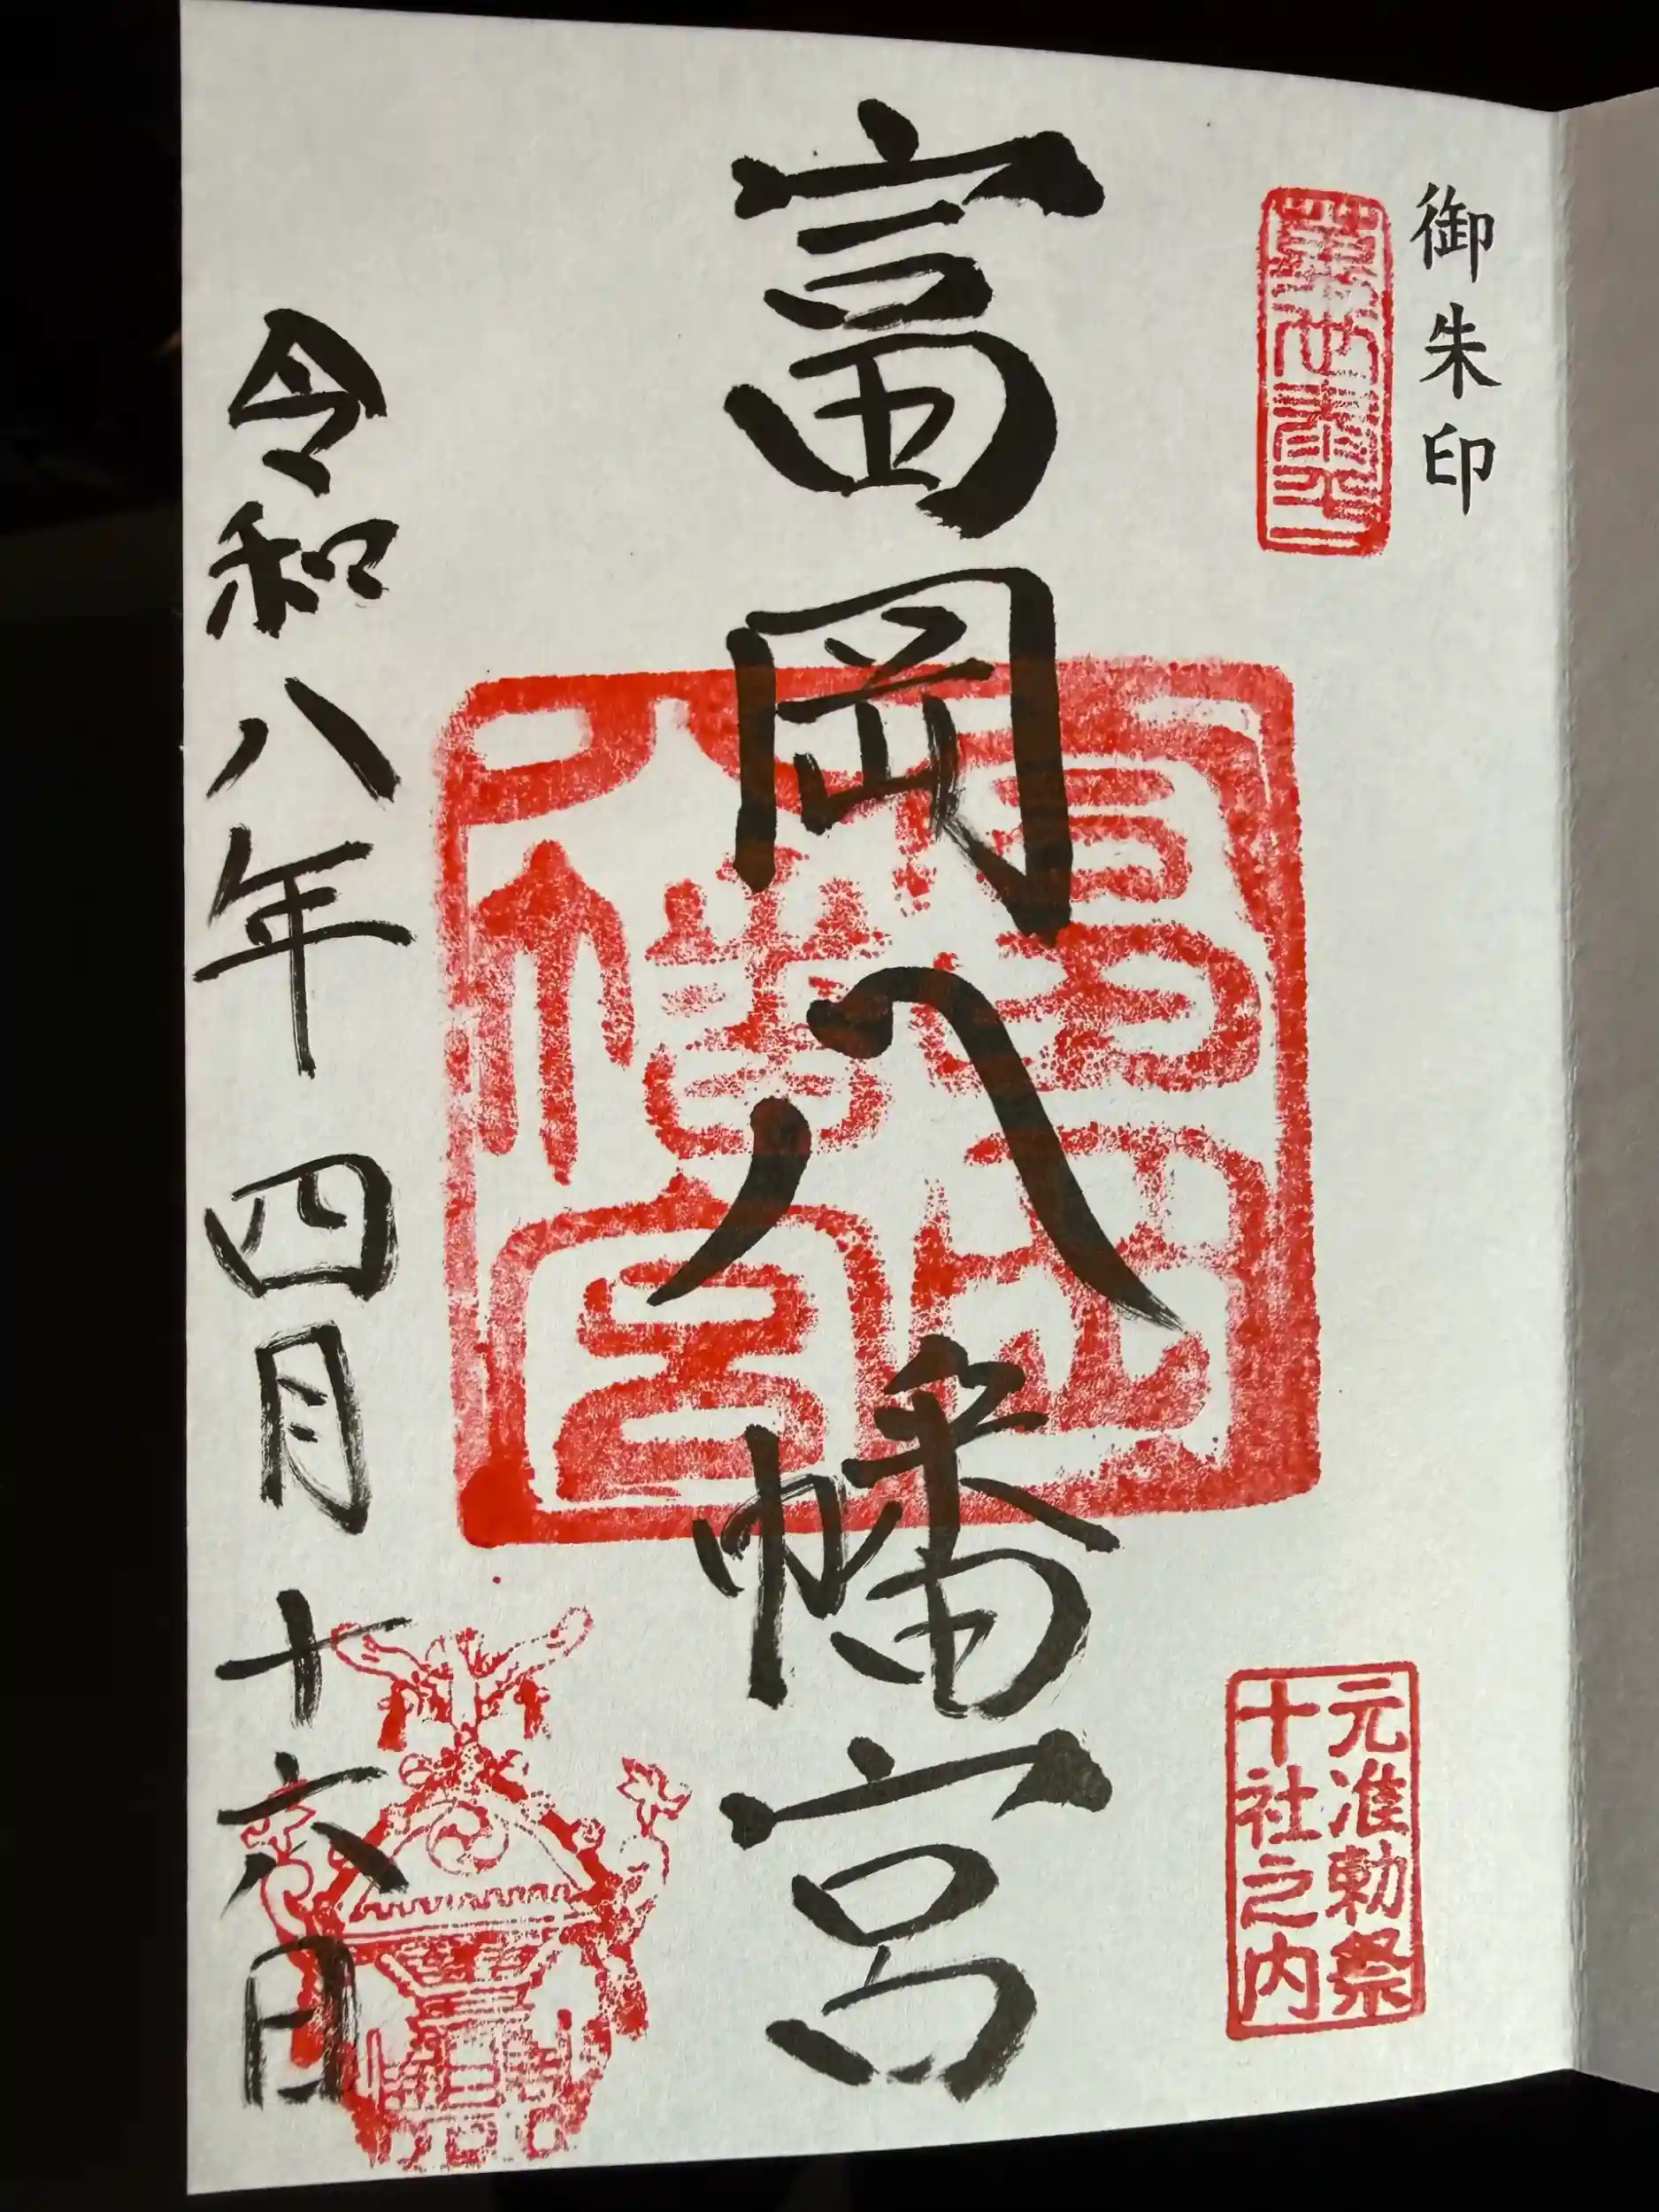 御朱印
富岡八幡宮
元准勅祭
十社之内
令和八年 四月十六日
富岡
八幡宮